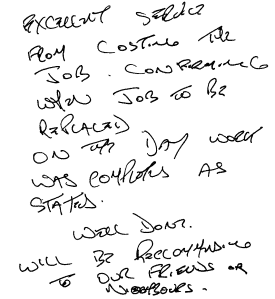 EXCELLENT SERVICE
FROM COSTING THE
JOB. CONFIRMING
WHEN JOB TO BE
REPLACED
ON THE DAY WORK
WAS COMPLETED AS
STATED.
WELL DONE.
WILL BE RECOMMENDING
TO OUR FRIENDS OR
NEIGHBOURS.